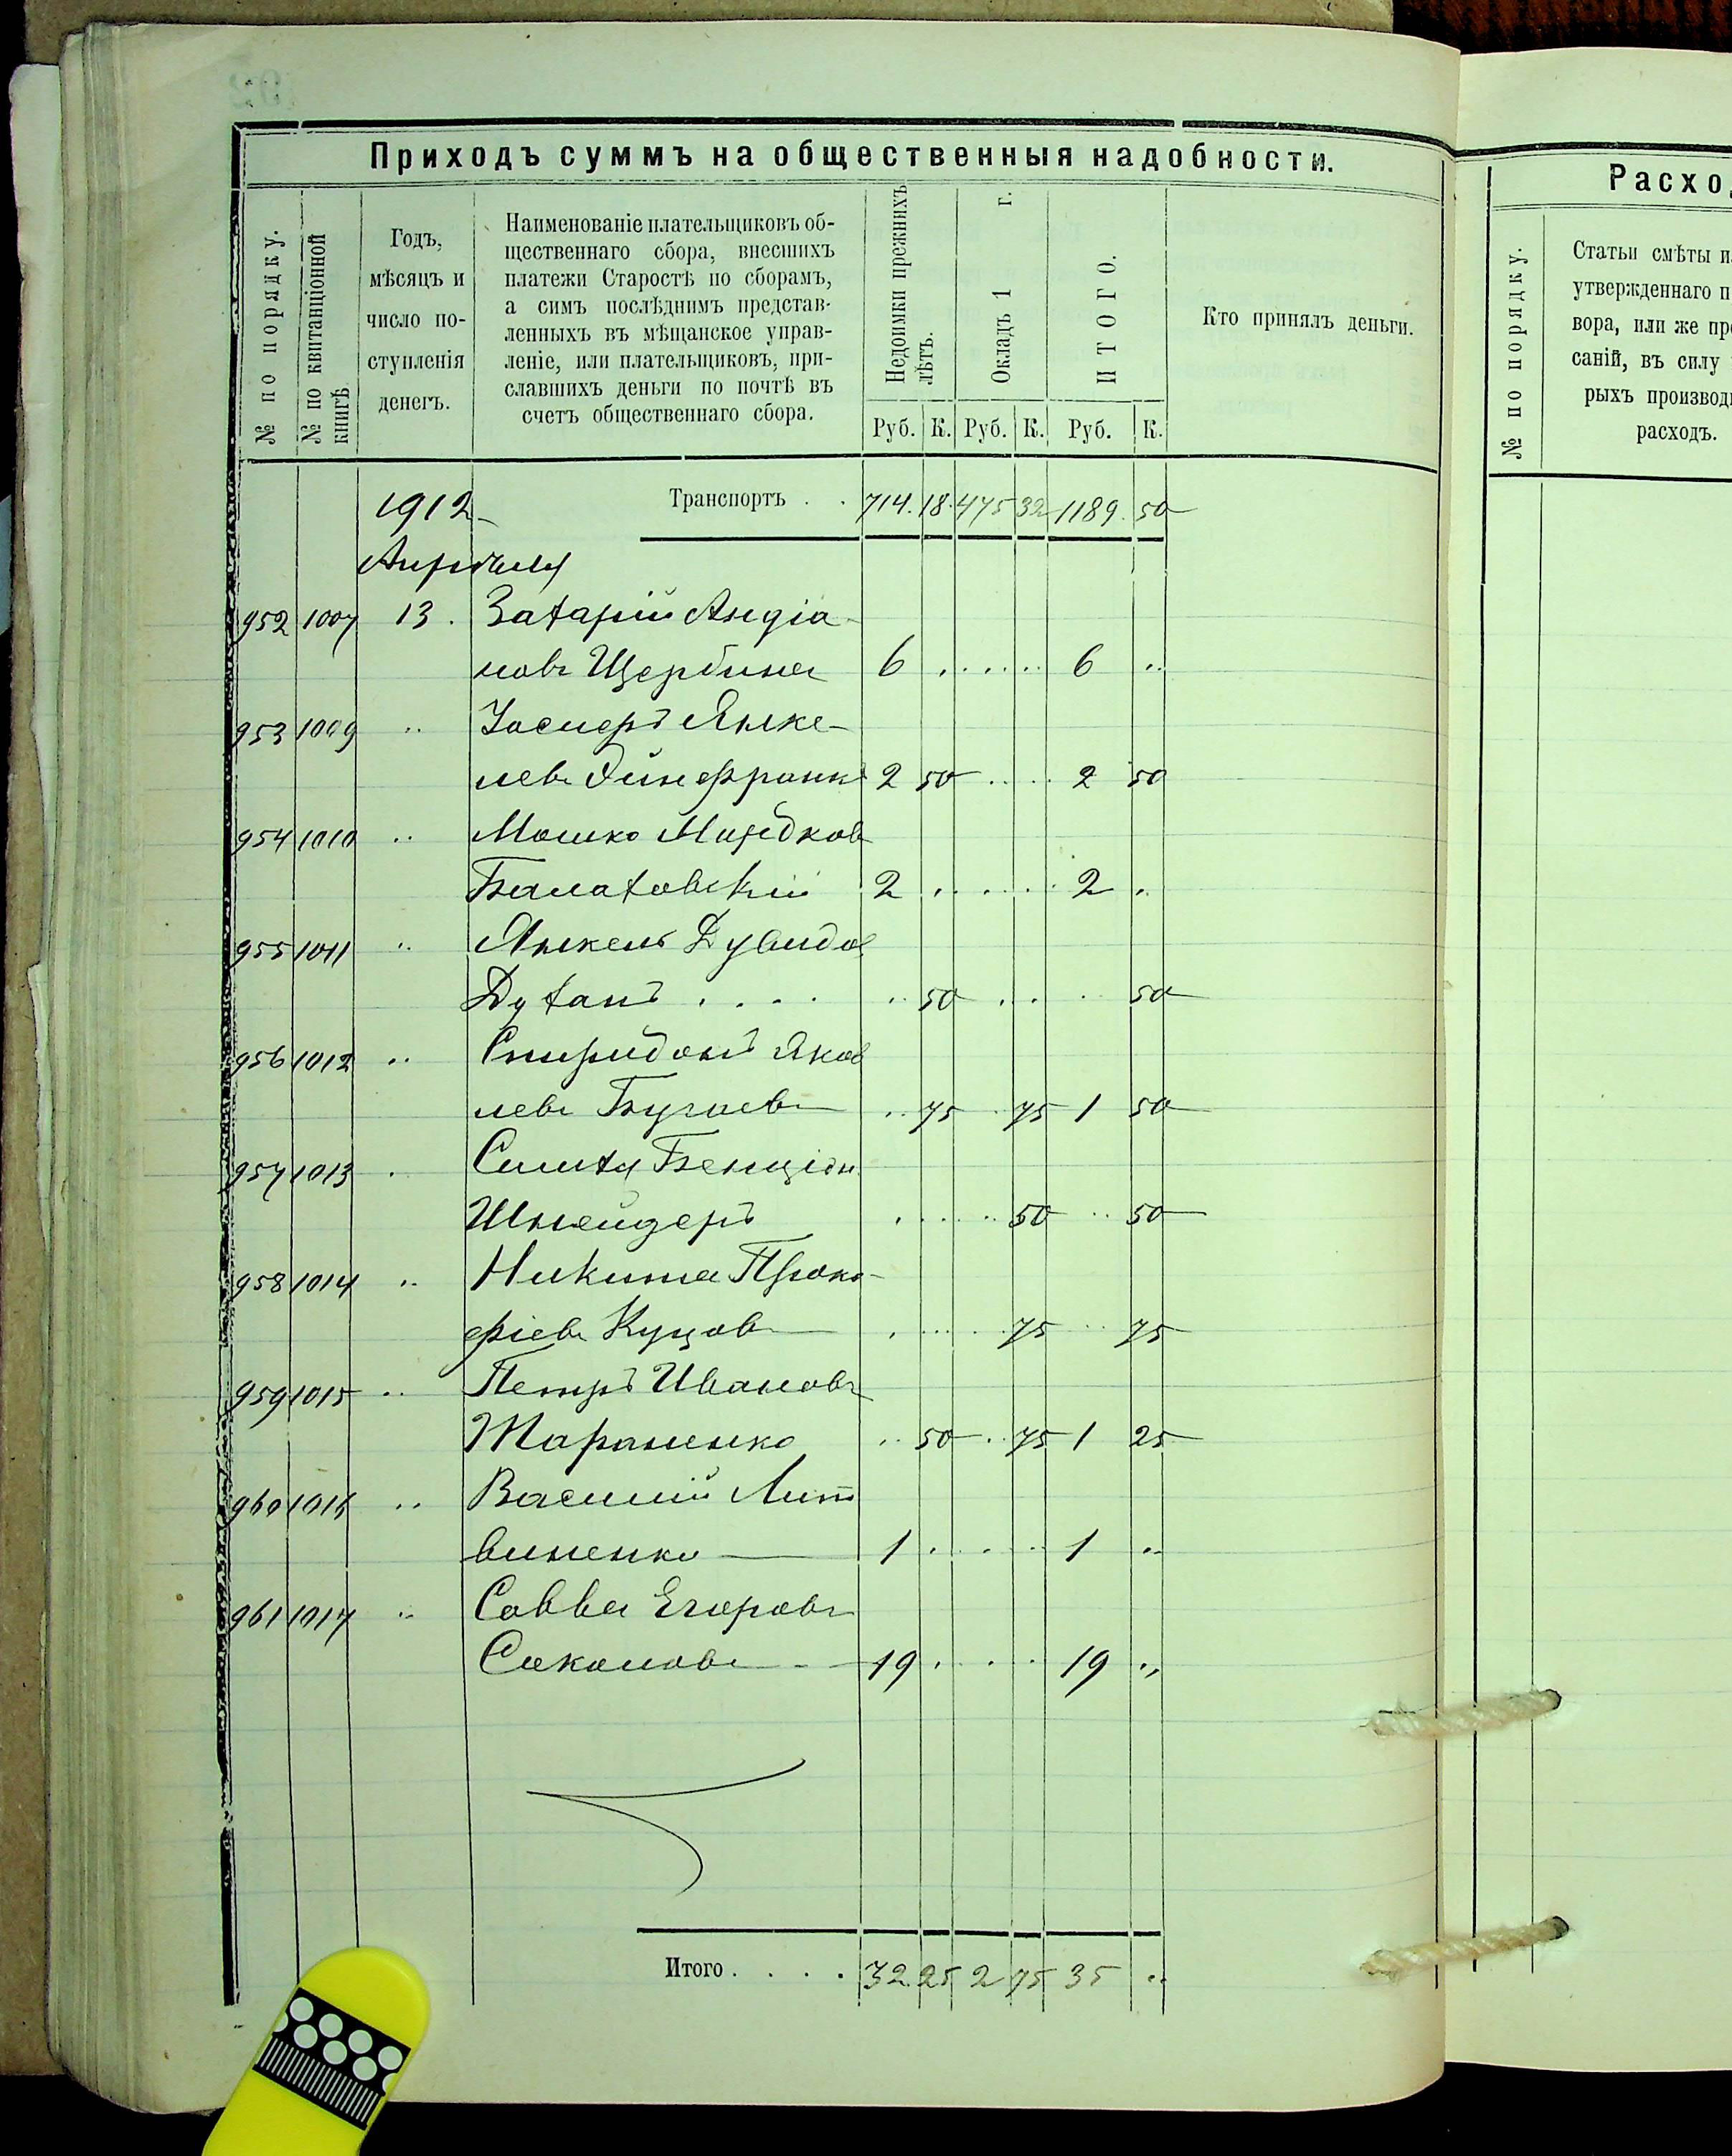 Приходъ суммъ на общественныя надобности.
№ по порядку.
№ по квитанціонной
книгѣ
Годъ,
мѣсяцъ и
число по-
ступленія
денегъ.
Наименованіе плательщиковъ об-
щественнаго сбора, внесшихъ
платежи Старостѣ по сборамъ,
а симъ послѣднимъ представ-
ленныхъ въ мѣщанское управ-
леніе, или плательщиковъ, при-
славшихъ деньги по почтѣ въ
счетъ общественнаго сбора.
Недоимки прежнихъ
лѣтъ.
Окладъ 1 г.
ИТОГО.
Кто принялъ деньги.
Руб. К. Руб. К. Руб. К.
1912 Транспортъ . . 714. 18. 475 32 1189. 50
Апрѣля
952 1007 13. Захарій Андіа-
новъ Щербина 6 . . . . . . 6 ..
953 1009 ..
левъ 2 50 . . . . 2 50
954 1010 .. Мошко
Балаховскій 2 . . . . . . 2 .
955 1011 .. Янкель Дувидов
Духанъ . . . . .. 50 . . . 50
956 1012 .. Спиридонъ Яков
левъ Бугаевъ .. 75 . 75 1 50
957 1013 . Симха Бенціон.
Шнейдеръ . . . . .. 50 .. 50
958 1014 .. Никита Проко-
фіевъ Куцов . . . . . 75 . . . 75
959 1015 .. Петръ Ивановъ
Тараненко .. 50 . .. 75 1 25
960 1016 .. Василій Лит
виненко 1 . . . . . 1 ..
961 1017 .. Савва Егоровъ
Соколовъ 19 . . . . 19 ..
Итого. . . . 32. 25 2 75 35 ..
Расхо
№ по порядку.
Статьи смѣты и
утвержденнаго п
вора, или же пр
саній, въ силу
рыхъ производ
расходъ.